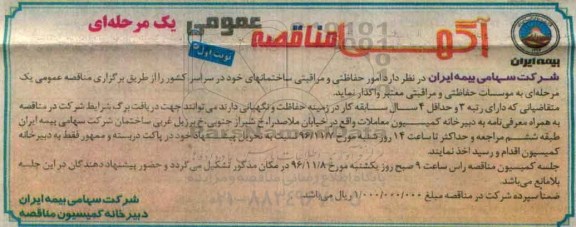 آگهی مناقصه عمومی یک مرحله‌ای
نوبت اول
بیمه ایران
شرکت سهامی بیمه ایران در نظر دارد امور حفاظتی و مراقبتی ساختمانهای خود در سراسر کشور را از طریق برگزاری مناقصه عمومی یک
مرحله‌ای به موسسات حفاظتی و مراقبتی معتبر واگذار نماید.
متقاضیانی که دارای رتبه ۳ و حداقل ۴ سال سابقه کار در زمینه حفاظت و نگهبانی دارند می‌توانند جهت دریافت برگ شرایط شرکت در مناقصه
به همراه معرفی نامه به دبیرخانه کمیسیون معاملات واقع در خیابان ملاصدرا، خ شیراز جنوبی، خ برزیل غربی ساختمان شرکت سهامی بیمه ایران
طبقه ششم مراجعه و حداکثر تا ساعت ۱۴ روز مورخ ۹۶/۱۱/۷ نسبت به تحویل پیشنهاد خود در پاکت دربسته و ممهور فقط به دبیرخانه
کمیسیون اقدام و رسید اخذ نمایند.
جلسه کمیسیون مناقصه راس ساعت ۹ صبح روز یکشنبه مورخ ۹۶/۱۱/۸ در مکان مذکور تشکیل می‌گردد و حضور پیشنهاد دهندگان در این جلسه
بلامانع می‌باشد.
ضمناً سپرده شرکت در مناقصه مبلغ ۱/۰۰۰/۰۰۰/۰۰۰ ریال می‌باشد.
شرکت سهامی بیمه ایران
دبیرخانه کمیسیون مناقصه